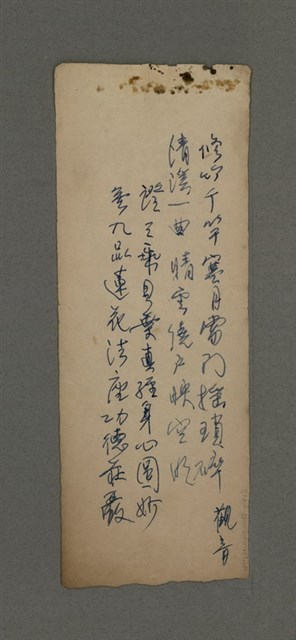 修竹千竿寒月當門搖瑣碎
清溪一曲晴雲繞戶映空明
證三乘貝葉真經身心圓妙
登九品蓮花法座功德莊嚴
觀音